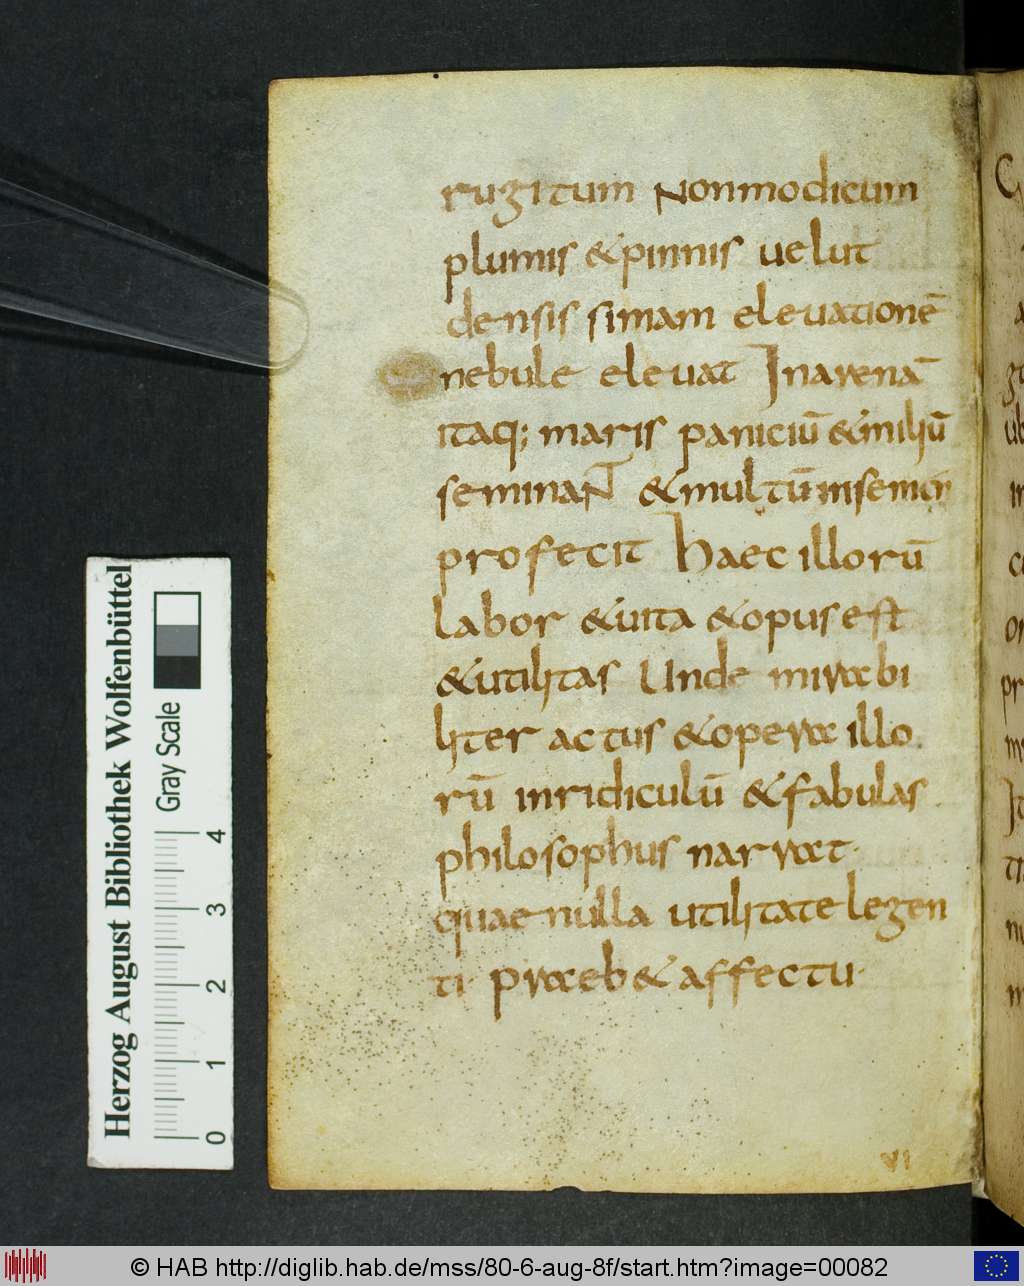 rugitum Nonmodicum
plumis &pinnis uelut
densissimam eleuationē
nebule eleuat Inarenā
itaq; maris paniciū &miliū
seminaNT &multū insemin
profecit Haec illorū
labor &uita &opus est
&utilitas Unde mirabi
liter actus &opera illo
rū inridiculū &fabulas
philosophus narrat·
quae nulla utilitate legen
ti· praeb& affectu·
VI
Herzog August Bibliothek Wolfenbüttel
Gray Scale
0 1 2 3 4
© HAB http://diglib.hab.de/mss/80-6-aug-8f/start.htm?image=00082